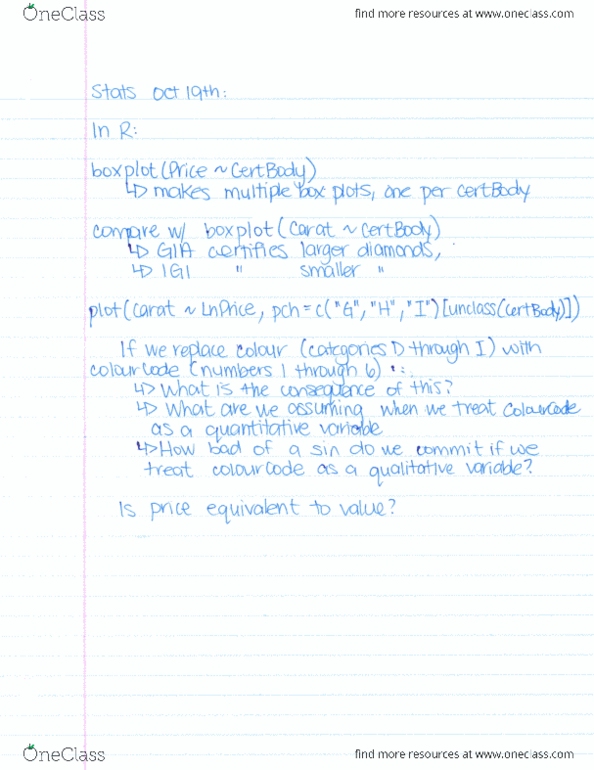 OneClass find more resources at www.oneclass.com
Stats Oct 19th:
In R:
boxplot(Price ~ CertBody)
↳ makes multiple box plots, one per certBody
compare w/ boxplot (Carat ~ CertBody)
↳ GIA certifies larger diamonds,
↳ IGI " smaller "
plot(carat ~ LnPrice, pch = c("G","H","I")[unclass(CertBody)])
If we replace colour (categories D through I) with
colourCode (numbers 1 through 6) :
↳ What is the consequence of this?
↳ What are we assuming when we treat ColourCode
as a quantitative variable
↳ How bad of a sin do we commit if we
treat colourCode as a qualitative variable?
Is price equivalent to value?
OneClass find more resources at www.oneclass.com